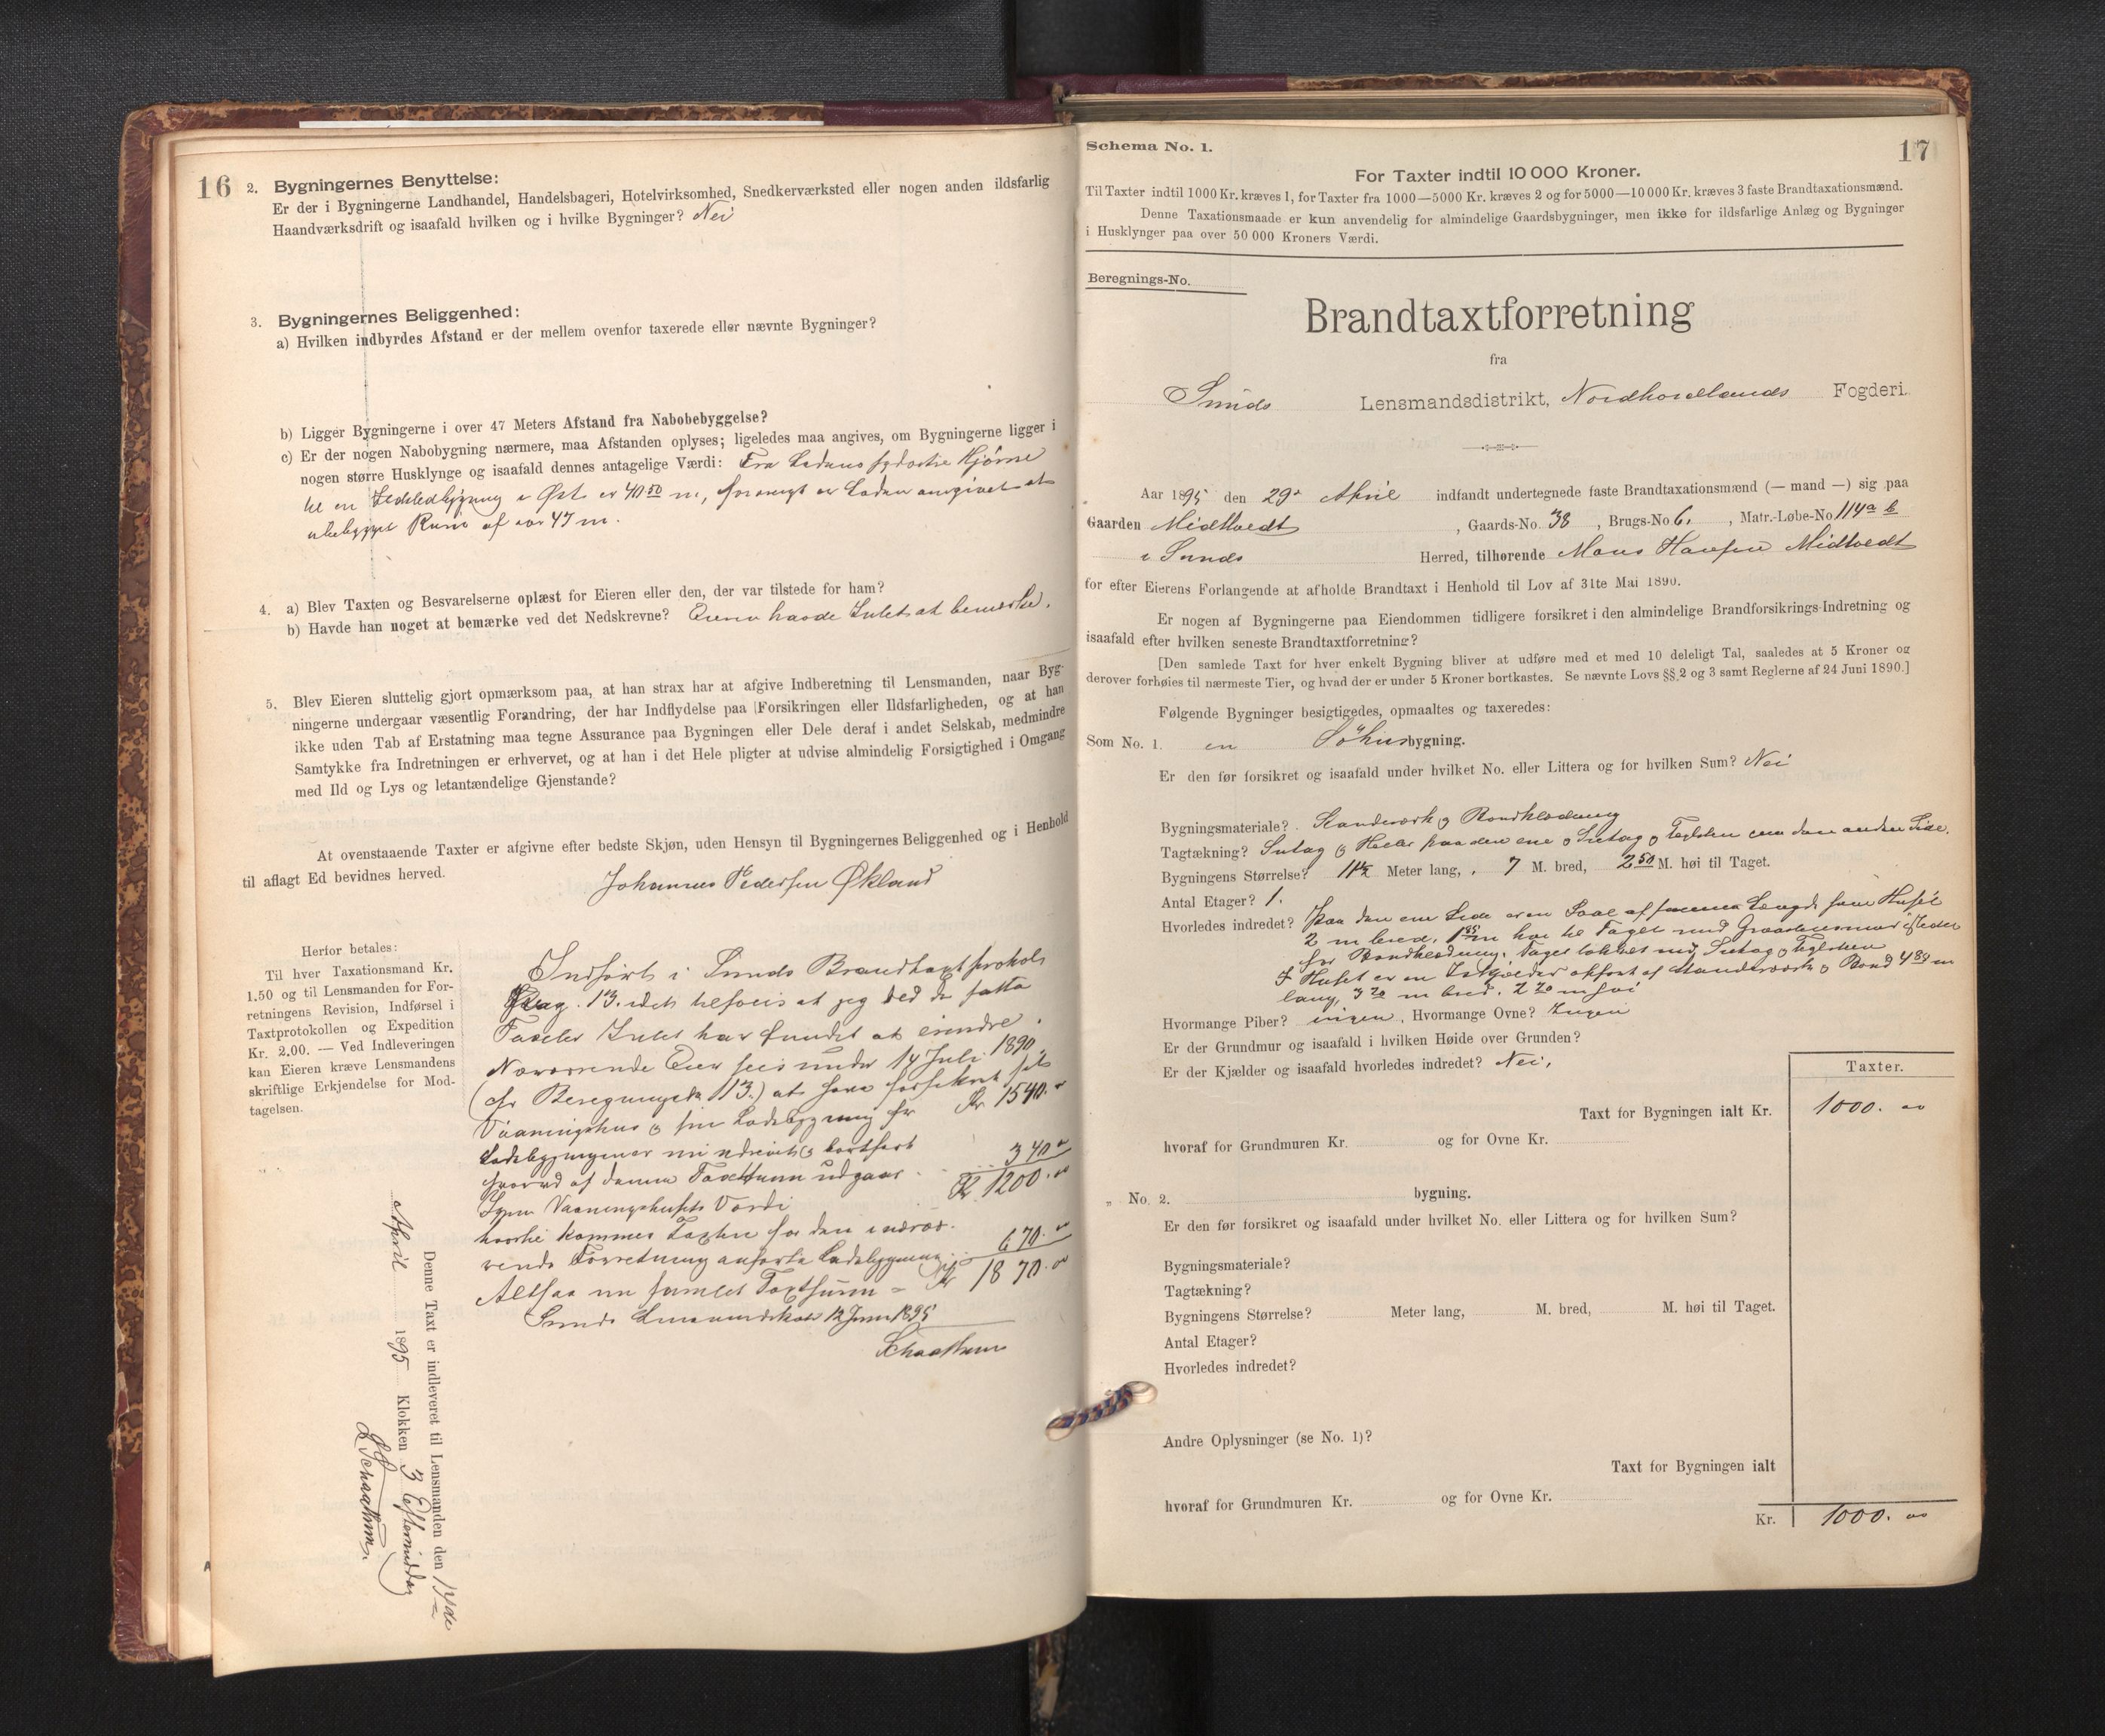 16
2. Bygningernes Benyttelse:
Er der i Bygningerne Landhandel, Handelsbageri, Hotelvirksomhed, Snedkerværksted eller nogen anden ildsfarlig
Haandværksdrift og isaafald hvilken og i hvilke Bygninger? Nei
3. Bygningernes Beliggenhed:
a) Hvilken indbyrdes Afstand er der mellem ovenfor taxerede eller nævnte Bygninger?
b) Ligger Bygningerne i over 47 Meters Afstand fra Nabobebyggelse?
c) Er der nogen Nabobygning nærmere, maa Afstanden oplyses; ligeledes maa angives, om Bygningerne ligger i
nogen større Husklynge og isaafald dennes antagelige Værdi: Fra Ladens sydøstre Hjørne
til en i Øst er 40 50 m, forøvrigt er Laden omgivet at
ubebygget Rum af over 47 m.
4. a) Blev Taxten og Besvarelserne oplæst for Eieren eller den, der var tilstede for ham?
b) Havde han noget at bemærke ved det Nedskrevne? Eieren havde Intet at bemærke.
5. Blev Eieren sluttelig gjort opmærksom paa, at han strax har at afgive Indberetning til Lensmanden, naar Byg-
ningerne undergaar væsentlig Forandring, der har Indflydelse paa Forsikringen eller Ildsfarligheden, og at han
ikke uden Tab af Erstatning maa tegne Assurance paa Bygningen eller Dele deraf i andet Selskab, medmindre
Samtykke fra Indretningen er erhvervet, og at han i det Hele pligter at udvise almindelig Forsigtighed i Omgang
med Ild og Lys og letantændelige Gjenstande?
At ovenstaaende Taxter er afgivne efter bedste Skjøn, uden Hensyn til Bygningernes Beliggenhed og i Henhold
til aflagt Ed bevidnes herved.
Johannes Pedersen Økland
Herfor betales:
Til hver Taxationsmand Kr.
1.50 og til Lensmanden for For-
retningens Revision, Indførsel i
Taxtprotokollen og Expedition
Kr. 2.00. — Ved Indleveringen
kan Eieren kræve Lensmandens
skriftlige Erkjendelse for Mod-
tagelsen.
Indført i Sunds Brandtaxtprotokol
Pag. 13. idet tilføies at jeg ved de satte
Taxter Intet har fundet at erindre.
Nærværende Eier sees under 14 Juli 1890
(cfr Beregningsno 113.) at have forsikret sit
Vaaningshus og sin Ladebygning for Kr 1540.00
Ladebygningen er nu nedrevet og bortført
hvorved af denne Taxtsum udgaar 340 00
Igjen Vaaningshusets Værdi Kr 1200.00
hvortil kommer Taxten for den i nærvæ-
rende Forretning anførte Ladebygning 670.00
Altsaa nu samlet Taxtsum = Kr 1870.00
Sunds Lensmandskontor 12 Juni 1895
Schaathun
Denne Taxt er indleveret til Lensmanden den 17de
April 1895 Klokken 3 Eftermiddag
Schaathun.
17
Schema No. 1.
For Taxter indtil 10 000 Kroner.
Til Taxter indtil 1000 Kr. kræves 1, for Taxter fra 1000—5000 Kr. kræves 2 og for 5000—10 000 Kr. kræves 3 faste Brandtaxationsmænd.
Denne Taxationsmaade er kun anvendelig for almindelige Gaardsbygninger, men ikke for ildsfarlige Anlæg og Bygninger
i Husklynger paa over 50 000 Kroners Værdi.
Beregnings-No.
Brandtaxtforretning
fra
Sunds Lensmandsdistrikt, Nordhordlands Fogderi.
Aar 1895 den 29de April indfandt undertegnede faste Brandtaxationsmænd (— mand —) sig paa
Gaarden Midttvedt, Gaards-No. 38, Brugs-No 6., Matr.-Løbe-No 114a b
i Sunds Herred, tilhørende Mons Hansen Midttvedt
for efter Eierens Forlangende at afholde Brandtaxt i Henhold til Lov af 31te Mai 1890.
Er nogen af Bygningerne paa Eiendommen tidligere forsikret i den almindelige Brandforsikrings-Indretning og
isaafald efter hvilken seneste Brandtaxtforretning?
[Den samlede Taxt for hver enkelt Bygning bliver at udføre med et med 10 deleligt Tal, saaledes at 5 Kroner og
derover forhøies til nærmeste Tier, og hvad der er under 5 Kroner bortkastes. Se nævnte Lovs §§ 2 og 3 samt Reglerne af 24 Juni 1890.]
Følgende Bygninger besigtigedes, opmaaltes og taxeredes:
Som No. 1. en Söhusbygning.
Er den før forsikret og isaafald under hvilket No. eller Littera og for hvilken Sum? Nei
Bygningsmateriale? Standværk og Bordklædning
Tagtækning? Sutag og Heller paa den ene og Sutag og Teglsten paa den anden Side.
Bygningens Størrelse? 11½ Meter lang, 7 M. bred, 2 50 M. høi til Taget.
Antal Etager? 1.
Hvorledes indredet? Paa den ene Side er en Sval af samme Længde som Huset
2 m bred, 1 85 m høi til Taget med Graastensmur istedet
for Bordklædning. Taget tækket med Sutag og Teglsten
I Huset er en opført af Standværk og Bord 4 80 m
lang, 3 20 m bred, 2 20 m høi
Hvormange Piber? ingen. Hvormange Ovne? Ingen
Er der Grundmur og isaafald i hvilken Høide over Grunden?
Er der Kjælder og isaafald hvorledes indredet? Nei.
Taxter.
Taxt for Bygningen ialt Kr. 1000. 00
hvoraf for Grundmuren Kr. og for Ovne Kr.
„ No. 2. bygning.
Er den før forsikret og isaafald under hvilket No. eller Littera og for hvilken Sum?
Bygningsmateriale?
Tagtækning?
Bygningens Størrelse? Meter lang, M. bred, M. høi til Taget.
Antal Etager?
Hvorledes indredet?
Andre Oplysninger (se No. 1)?
Taxt for Bygningen ialt
hvoraf for Grundmuren Kr. og for Ovne Kr.
Kr. 1000. 00